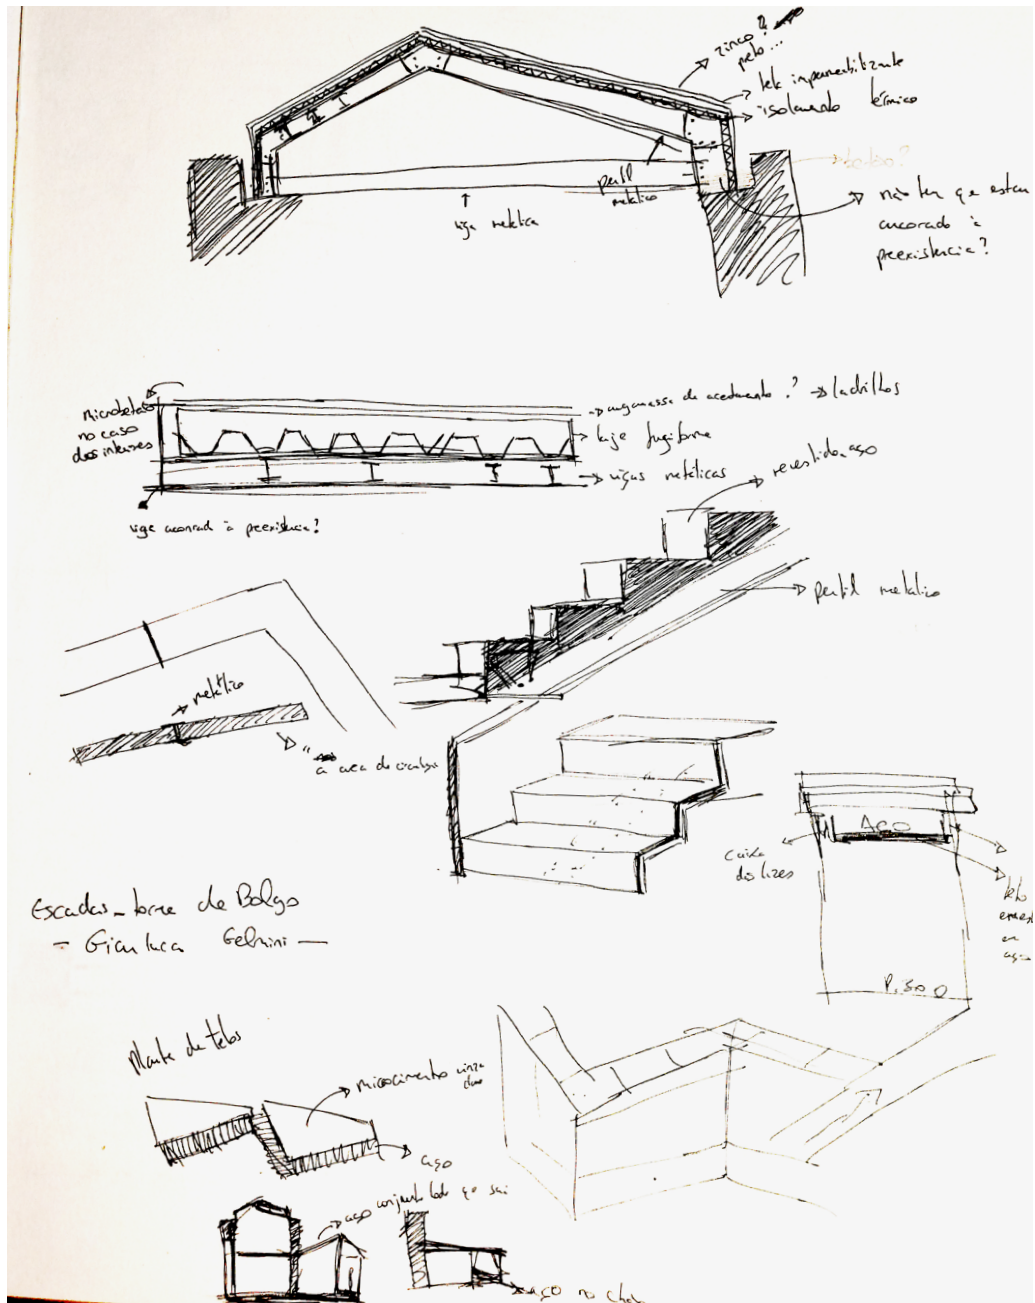 zinco?
preto...
tela impermeabilizante
isolamento térmico
betão?
perfil
metálico
viga metálica
não tem que estar
ancorado à
preexistência?
microbetão
no caso
dos interiores
argamassa de acabamento? → ladrilhos
laje fungiforme
vigas metálicas
revestido aço
viga ancorad à preexistência?
perfil metalico
metálico
a area de
AÇO
caixa
das luzes
teto
em
aço
Escadas - torre de Bolgo
- Gianluca Gelmini -
PISO 0
Planta de tetos
microcimento cinza
claro
aço
aço conjunto todo que sai
aço no chão